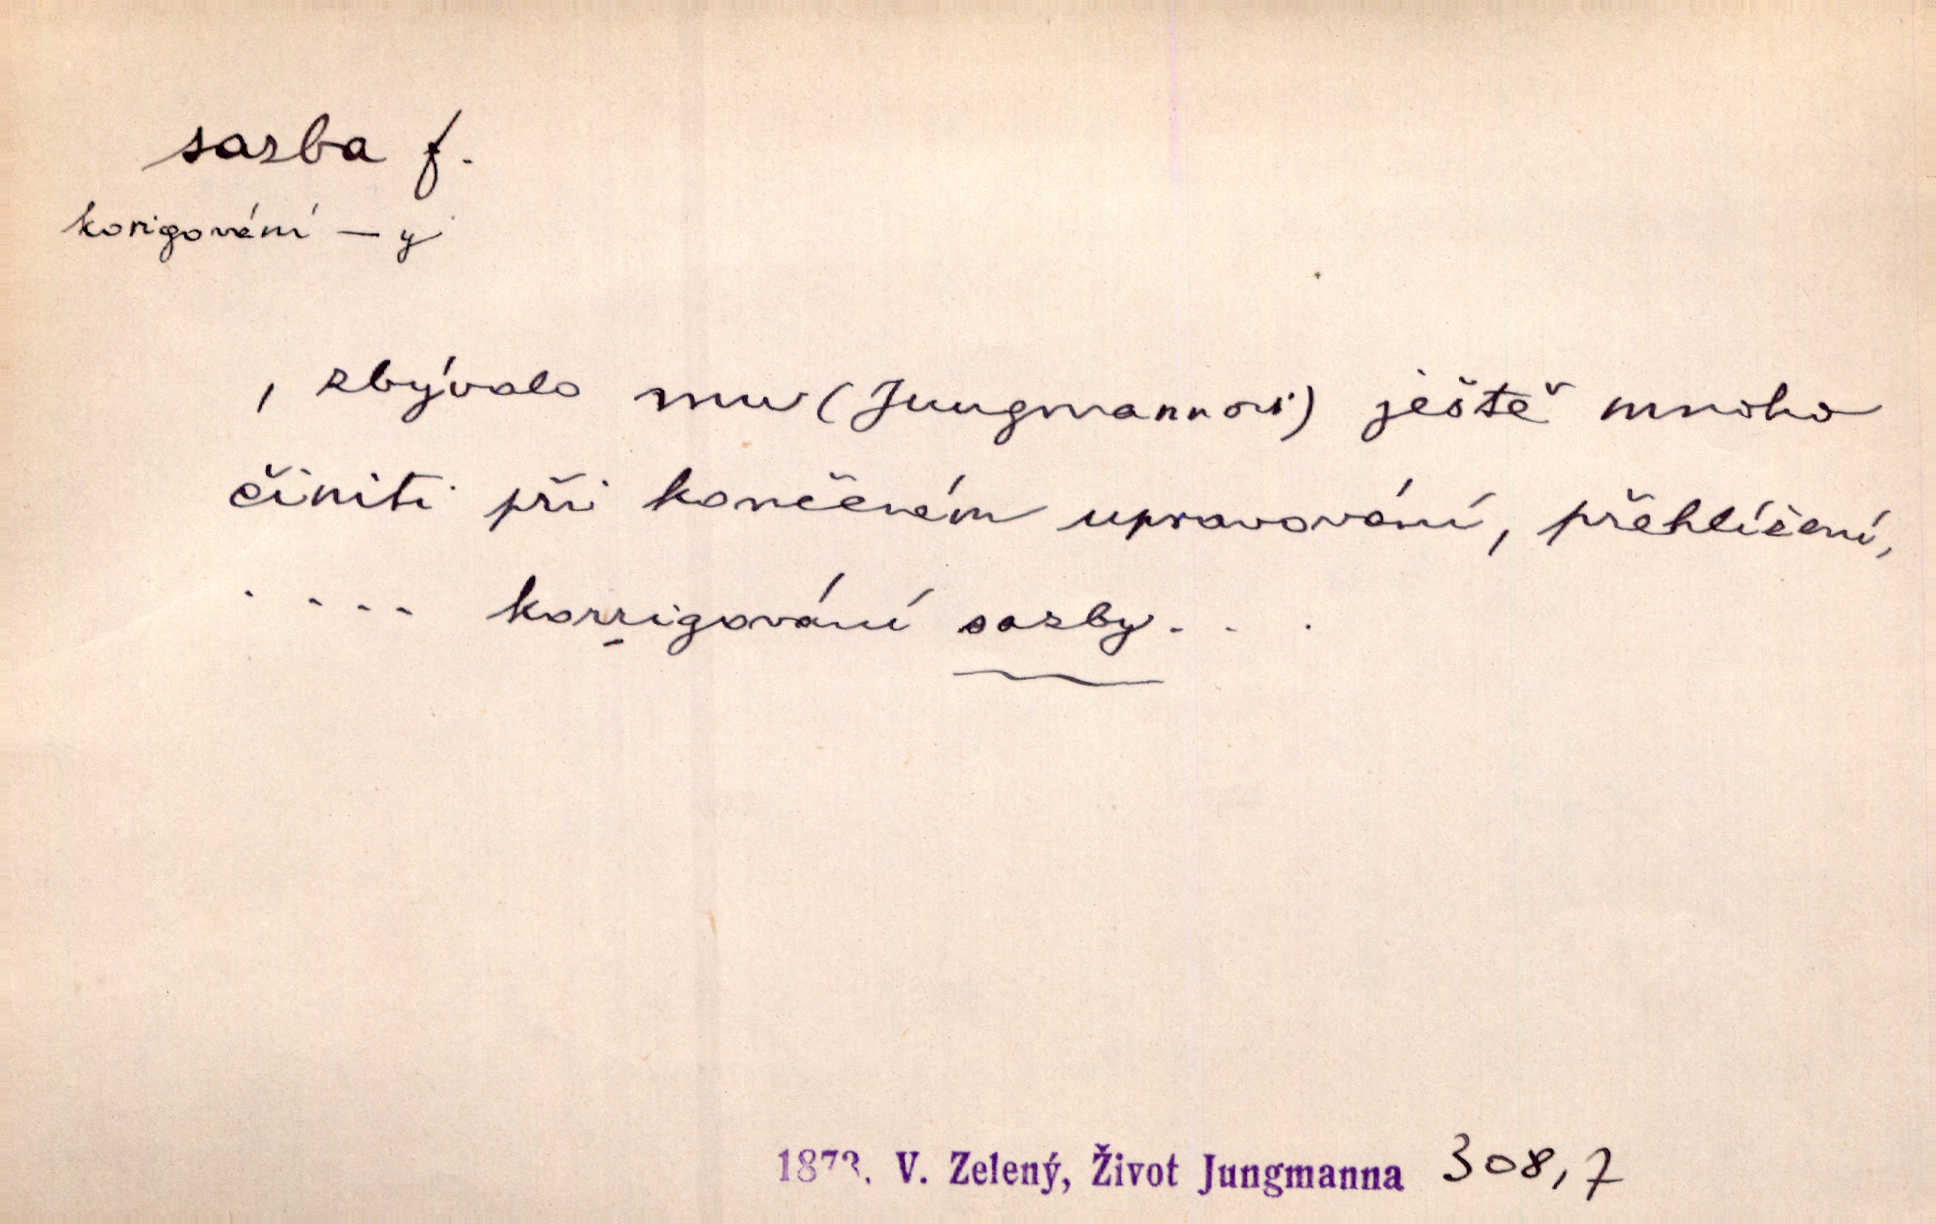 sazba f.
korigování – y
, zbývalo mu (Jungmannovi) ještě mnoho
činiti při konečném upravování, přehlížení,
.... korrigování sazby...
1873. V. Zelený, Život Jungmanna 308,7